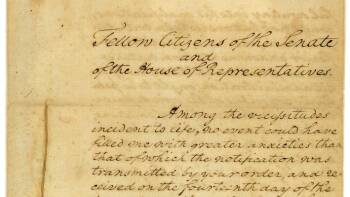 Fellow Citizens of the Senate
and
of the House of Representatives.
Among the vicissitudes
incident to life, no event could have
filled me with greater anxieties than
that of which the notification was
transmitted by your order, and re-
ceived on the fourteenth day of the